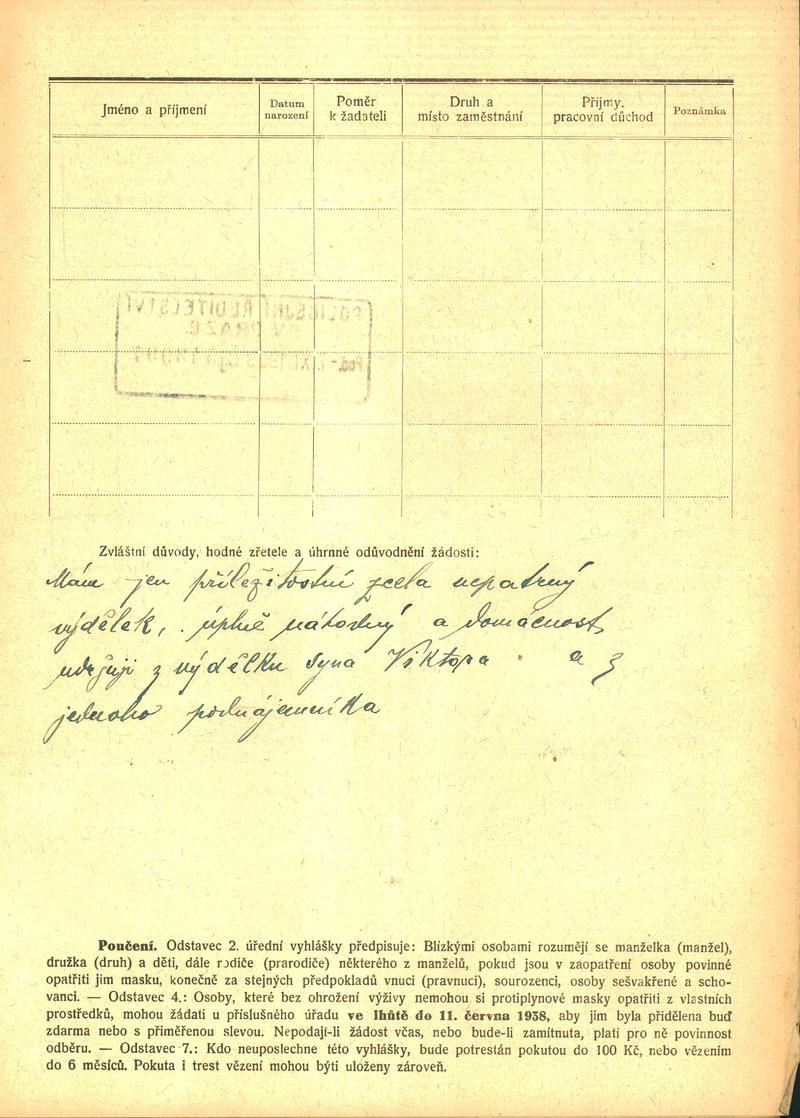 Jméno a příjmení
Datum narození
Poměr k žadateli
Druh a místo zaměstnání
Příjmy, pracovní důchod
Poznámka
POLICEJNÍ ŘEDITELSTVÍ
V PRAZE
Zvláštní důvody, hodné zřetele a úhrnné odůvodnění žádosti:
Mám jen příležitostní zcela nepatrný
výdělek, úplně nátodný a domácnost
udržuji z výdělku syna Viktora a z
jednoho podnájemníka
Poučení. Odstavec 2. úřední vyhlášky předpisuje: Blízkými osobami rozumějí se manželka (manžel),
družka (druh) a děti, dále rodiče (prarodiče) některého z manželů, pokud jsou v zaopatření osoby povinné
opatřiti jim masku, konečně za stejných předpokladů vnuci (pravnuci), sourozenci, osoby sešvakřené a scho-
vanci. — Odstavec 4.: Osoby, které bez ohrožení výživy nemohou si protiplynové masky opatřiti z vlastních
prostředků, mohou žádati u příslušného úřadu ve lhůtě do 11. června 1938, aby jim byla přidělena buď
zdarma nebo s přiměřenou slevou. Nepodají-li žádost včas, nebo bude-li zamítnuta, platí pro ně povinnost
odběru. — Odstavec 7.: Kdo neuposlechne této vyhlášky, bude potrestán pokutou do 100 Kč, nebo vězením
do 6 měsíců. Pokuta i trest vězení mohou býti uloženy zároveň.